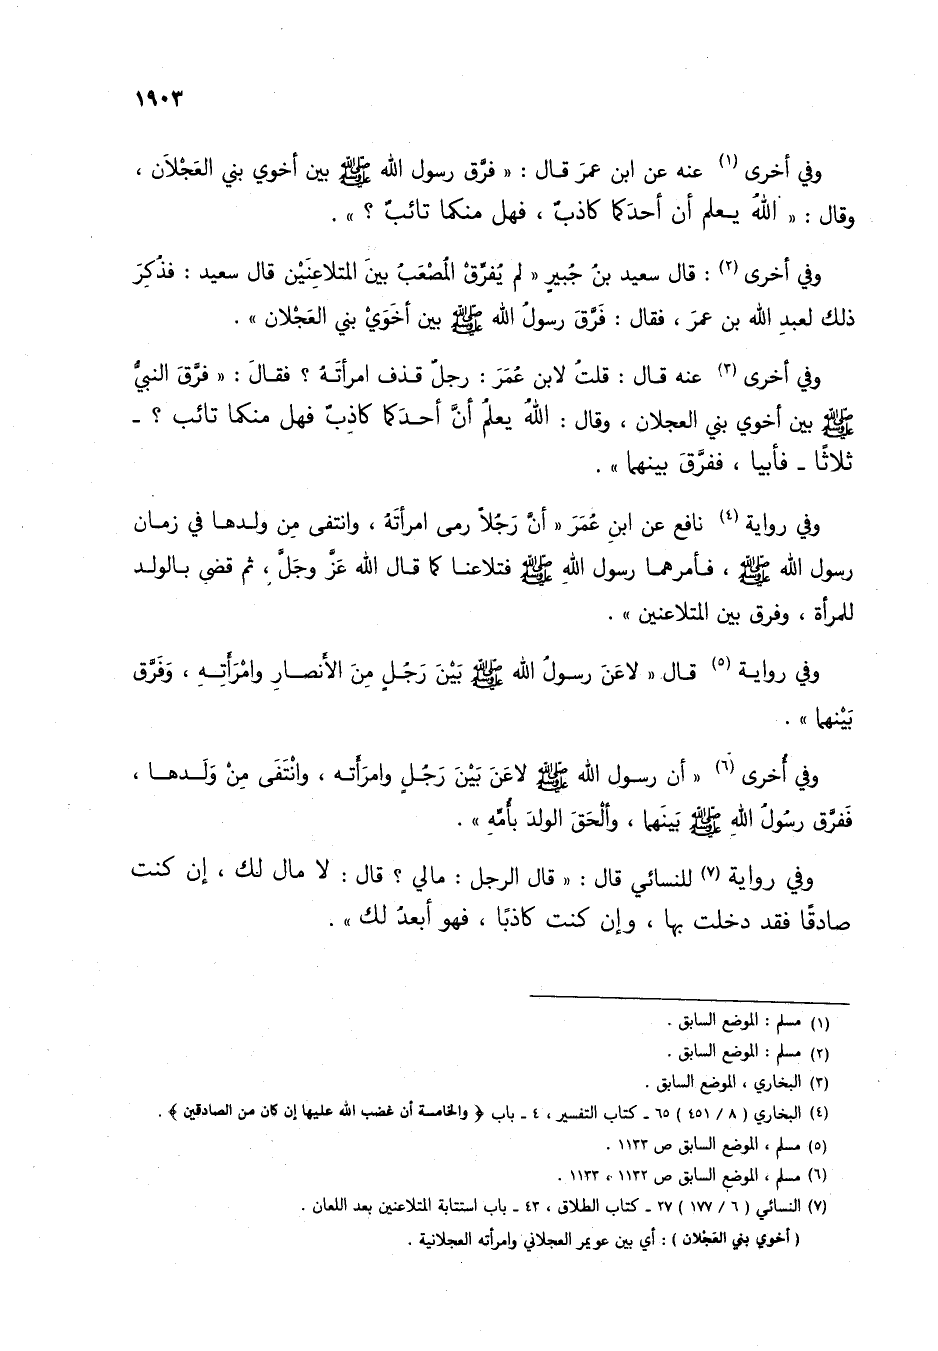 ١٩٠٣
وفي أخرى (١) عنه عن ابن عمرَ قال : « فرَّق رسول الله ﷺ بين أخوي بني العَجْلَان ،
وقال : « اللهُ يعلم أن أحدَكما كاذبٌ ، فهل منكما تائبٌ ؟ » .
وفي أخرى (٢) : قال سعيد بنُ جُبيرٍ « لم يُفرِّقْ الْمُصْعَبُ بينَ المتلاعِنَيْن قال سعيد : فذُكِرَ
ذلك لعبدِ الله بن عمرَ ، فقال : فَرَّقَ رسولُ الله ﷺ بين أخَوَيْ بني العَجْلان » .
وفي أخرى (٣) عنه قال : قلتُ لابن عُمَرَ : رجلٌ قذف امرأتَهُ ؟ فقالَ : « فرَّقَ النبيُّ
ﷺ بين أخوي بني العجلان ، وقال : اللهُ يعلمُ أنَّ أحدَكما كاذِبٌ فهل منكما تائب ؟ ـ
ثلاثًا ـ فأبيا ، ففرَّقَ بينهما » .
وفي رواية (٤) نافع عن ابنِ عُمَرَ « أنَّ رَجُلاً رمى امرأتَهُ ، وانتفى مِن ولدها في زمان
رسول الله ﷺ ، فأمرهما رسول اللهِ ﷺ فتلاعنا كما قال الله عَزَّ وجَلَّ ، ثم قضى بالولد
للمرأة ، وفرق بين المتلاعنين » .
وفي رواية (٥) قال « لاعَنَ رسولُ الله ﷺ بَيْنَ رَجُلٍ مِنَ الأَنصارِ وامْرَأَتِهِ ، وَفَرَّق
بَيْنهما » .
وفي أُخرى (٦) « أن رسول الله ﷺ لاعَنَ بَيْنَ رَجُلٍ وامرَأَته ، وانْتَفَى مِنْ وَلَدها ،
فَفرَّق رسُولُ اللهِ ﷺ بَينَهما ، وألْحَقَ الولدَ بأُمِّهِ » .
وفي رواية (٧) للنسائي قال : « قال الرجل : مالي ؟ قال : لا مال لك ، إن كنت
صادقًا فقد دخلت بها ، وإن كنت كاذبًا ، فهو أبعدُ لك » .
(١) مسلم : الموضع السابق .
(٢) مسلم : الموضع السابق .
(٣) البخاري ، الموضع السابق .
(٤) البخاري ( ٨ / ٤٥١ ) ٦٥ ـ كتاب التفسير ، ٤ ـ باب ﴿ والخامسة أن غضب الله عليها إن كان من الصادقين ﴾ .
(٥) مسلم ، الموضع السابق ص ١١٣٣ .
(٦) مسلم ، الموضع السابق ص ١١٣٢ ، ١١٣٣ .
(٧) النسائي ( ٦ / ١٧٧ ) ٢٧ ـ كتاب الطلاق ، ٤٣ ـ باب استتابة المتلاعنين بعد اللعان .
( أخوي بني العَجْلان ) : أي بين عويمر العجلاني وامرأته العجلانية .